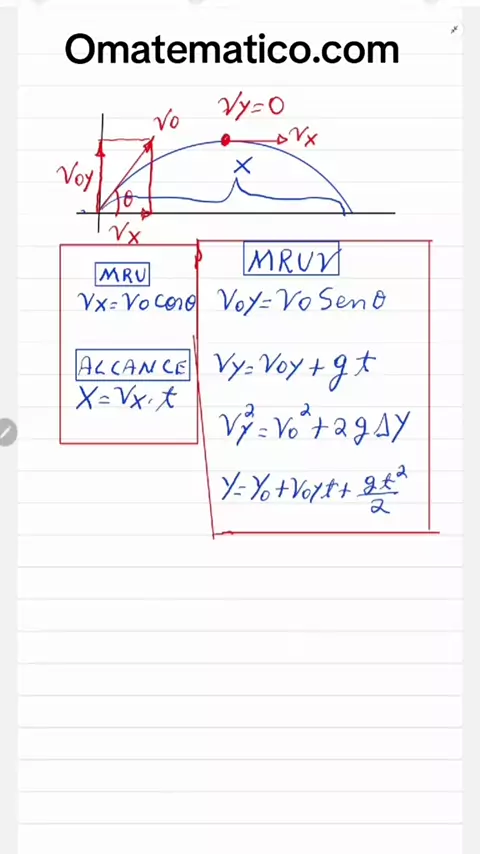 Omatematico.com
Vy=0
V0
Vx
V0y
X
θ
Vx
MRU
Vx=V0 cosθ
ALCANCE
X=Vx.t
MRUV
V0y=V0 Senθ
Vy=V0y+gt
Vy²=V0²+2gΔY
Y=Y0+V0yt+gt²/2